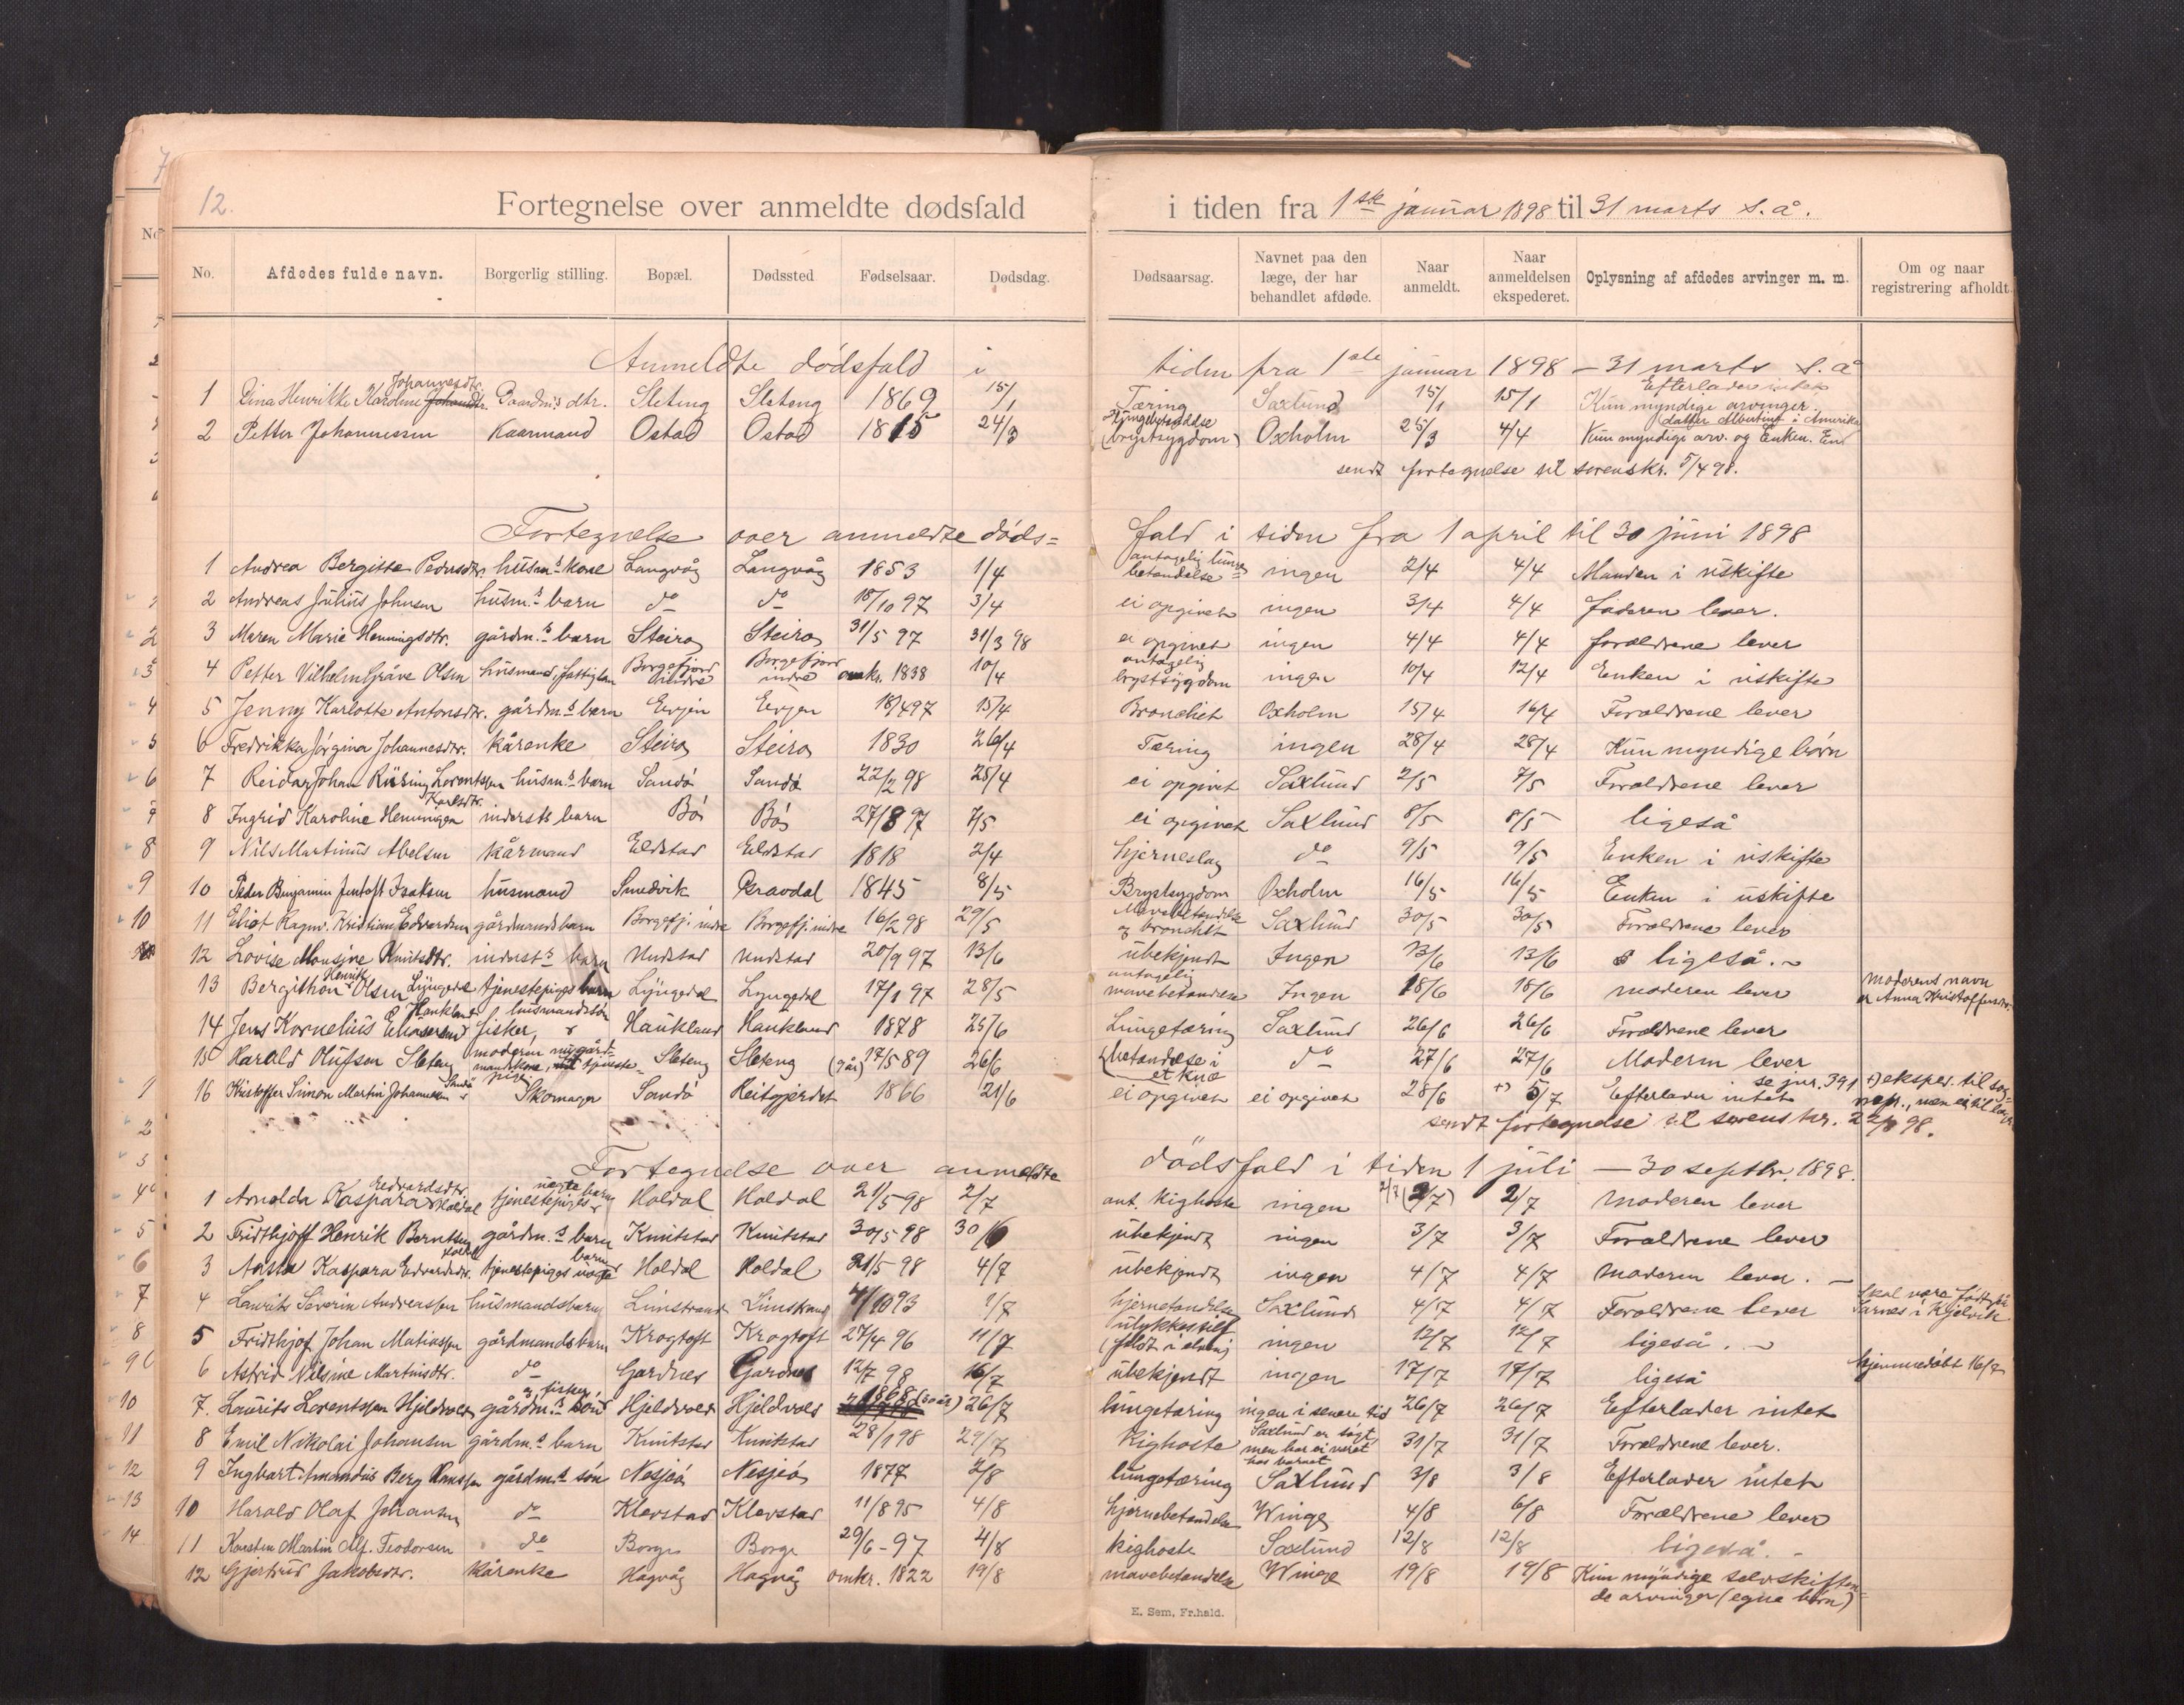 12.
Fortegnelse over anmeldte dødsfald i tiden fra 1ste januar 1898 til 31 marts s. å.
No. Afdødes fulde navn. Borgerlig stilling. Bopæl. Dødssted Fødselsaar. Dødsdag. Dødsaarsag. Navnet paa den læge, der har behandlet afdøde. Naar anmeldt. Naar anmeldelsen ekspederet. Oplysning af afdødes arvinger m. m. Om og naar registrering afholdt
Anmeldte dödsfald i tiden fra 1ste januar 1898 – 31 marts s. å
1 Dina Henrikke Karoline Johannesdtr. Gaardm.s dtr. Sleteng Sleteng 1869 15/1 Tæring Saxlund 15/1 15/1 Efterlader intet Kun myndige arvinger.
2 Petter Johannessen Kaarmand Ostad Ostad 1815 24/3 Lungebetændelse (brystsygdom) Oxholm 25/3 4/4 Kun myndige arv. og Enken. En datter Albertine i Amerika
sendt fortegnelse til sorenskr. 5/4 98.
Fortegnelse over anmeldte döds= fald i tiden fra 1 april til 30 juni 1898
1 Andrea Bergitte Pedersdtr. husm.s kone Langvåg Langvåg 1853 1/4 antagelig lunge= betændelse ingen 2/4 4/4 Manden i uskifte
2 Andreas Julius Johnsen husm.s barn do do 18/10 97 3/4 ei opgivet ingen 3/4 4/4 faderen lever.
3 Maren Marie Henningsdtr. gårdm.s barn Steiro Steiro 31/5 97 31/3 98 ei opgivet ingen 4/4 4/4 forældrene lever
4 Petter Vilhelm Gråve Olsen husmand, fattiglem Borgefjord indre Borgefjord indre omkr. 1838 10/4 antagelig brystsygdom ingen 10/4 12/4 Enken i uskifte
5 Jenny Karlotte Antonsdtr. gårdm.s barn Evjen Evjen 18/4 97 15/4 Bronchit Oxholm 15/4 16/4 Forældrene lever
6 Fredrikka Jörgina Johannesdtr. kårenke Steiro Steiro 1830 26/4 Tæring ingen 28/4 28/4 Kun myndige börn
7 Reidar Johan Rüsing Lorentssen husm.s barn Sandö Sandö 22/2 98 28/4 ei opgivet Saxlund 2/5 7/5 Forældrene lever
8 Ingrid Karoline Henningsen Karlsdtr. inderste barn Bö Bö 27/8 97 7/5 ei opgivet Saxlund 8/5 8/5 ligeså
9 Nils Martinus Abelsen kårmand Eldstad Eldstad 1818 2/4 hjerneslag do 9/5 9/5 Enken i uskifte
10 Peder Benjamin Jentoft Isaksen husmand Smedvik 1845 8/5 Brystsygdom Oxholm 16/5 16/5 Enken i uskifte
11 Eliot Ragnv. Kristian Edvardsen gårdmandsbarn Borgefj. indre Borgefj. indre 16/2 98 29/5 Mavebetændelse og bronchit Saxlund 30/5 30/5 Forældrene lever
12 Lovise Monsine Knutsdtr. inderst.s barn Undstad Undstad 20/9 97 13/6 ubekjendt Ingen 13/6 13/6 ligeså.
13 Bergithon Henrik Olsen Lyngedal tjenestepiges barn Lyngedal Lyngedal 17/1 97 28/5 antagelig mavebetændelse Ingen 18/6 18/6 moderen lever moderens navn er Anna Kristoffersdtr.
14 Jens Kornelius Eliassen Haukland fisker, husmandssön Haukland Haukland 1878 25/6 Lungetæring Saxlund 26/6 26/6 Forældrene lever
15 Harald Olufsen Sleteng Sleteng Sleteng (9år) 17/5 89 26/6 (betændelse i et knæ do 27/6 27/6 Moderen lever
16 Kristoffer Simon Martin Johannesen Sandö Skomager Sandö Reitgjerdet 1866 21/6 ei opgivet ei opgivet 28/6 +) 5/7 Efterlader intet se jnr. 391 +) eksper. til
sendt fortegnelse til sorenskr. 98.
Fortegnelse over anmeldte dödsfald i tiden 1 juli – 30 septbr. 1898.
1 Arnolda Kaspara Edvardsdtr. Holdal tjenestepiges uægte barn Holdal Holdal 21/5 98 2/7 ant. kighoste ingen 2/7 2/7 moderen lever
2 Fridthjoff Henrik Berntsen gårdm.s barn Knutstad Knutstad 30/5 98 30/6 ubekjendt ingen 3/7 3/7 Forældrene lever
3 Aasta Kaspara Edvardsdtr. Holdal tjenestepiges uægte barn Holdal Holdal 21/5 98 4/7 ubekjendt ingen 4/7 4/7 moderen lever.
4 Laurits Severin Andreassen husmandsbarn Limstrand Limstrand 4/10 93 1/7 Saxlund 4/7 4/7 Forældrene lever Skal være födt på Sarnes i Kjelvik
5 Fridthjof Johan Matiassen gårdmandsbarn Krogtoft Krogtoft 27/4 96 11/7 ulykkestilf. (faldt i elven) ingen 12/7 12/7 ligeså.
6 Astrid Nilsine Martinsdtr. do Gardnes Gardnes 12/7 98 16/7 ubekjendt ingen 17/7 17/7 ligeså hjemmedöbt 16/7
7. Laurits Lorentssen Hjeldvold gårdm.s sön og fisker Hjeldvold Hjeldvold 1868 (30 år) 26/7 lungetæring ingen i senere tid 26/7 26/7 Efterlader intet
8 Emil Nikolai Johansen gårdm.s barn Knutstad Knutstad 28/1 98 29/7 Kighoste Saxlund er sögt, men har ei været hos barnet 31/7 31/7 Forældrene lever.
9 Ingbart Amandus Berg Hanssen gårdm.s sön Nesjeö Nesjeö 1877 2/8 lungetæring Saxlund 3/8 3/8 Efterlader intet
10 Harald Olaf Johansen do Klevstad Klevstad 11/8 95 4/8 hjernebetændelse Winge 4/8 6/8 Forældrene lever
11 Karsten Martin Alf. Teodorsen do Borge Borge 29/6 – 97 4/8 kighoste Saxlund 12/8 12/8 ligeså.
12 Gjertrud Jakobsdtr. kårenke Hagvåg Hagvåg omkr. 1822 19/8 mavebetændelse Winge 19/8 19/8 Kun myndige selvskiften= de arvinger (egne börn)
E. Sem, Fr.hald.